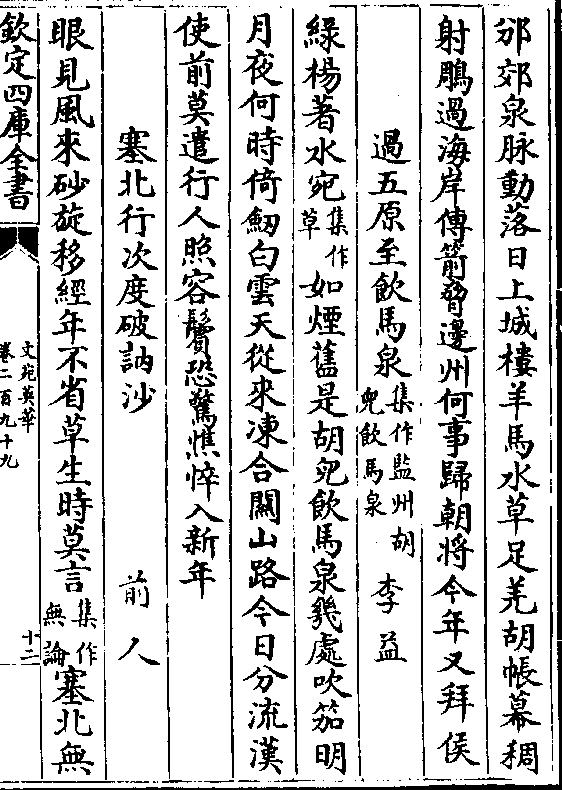 邠郊泉脉動落日上城樓羊馬水草足羌胡帳幕稠
射鵰過海岸傳箭脅邊州何事歸朝將今年又拜侯
過五原至飲馬泉集作監州胡兒飲馬泉 李益
綠楊著水宛集作草如煙舊是胡兒飲馬泉幾處吹笳明
月夜何時倚劔白雲天從來凍合關山路今日分流漢
使前莫遣行人照容鬢恐驚憔悴入新年
塞北行次度破訥沙 前人
眼見風來砂旋移經年不省草生時莫言集作無論塞北無
欽定四庫全書
文苑英華
卷二百九十九
十二